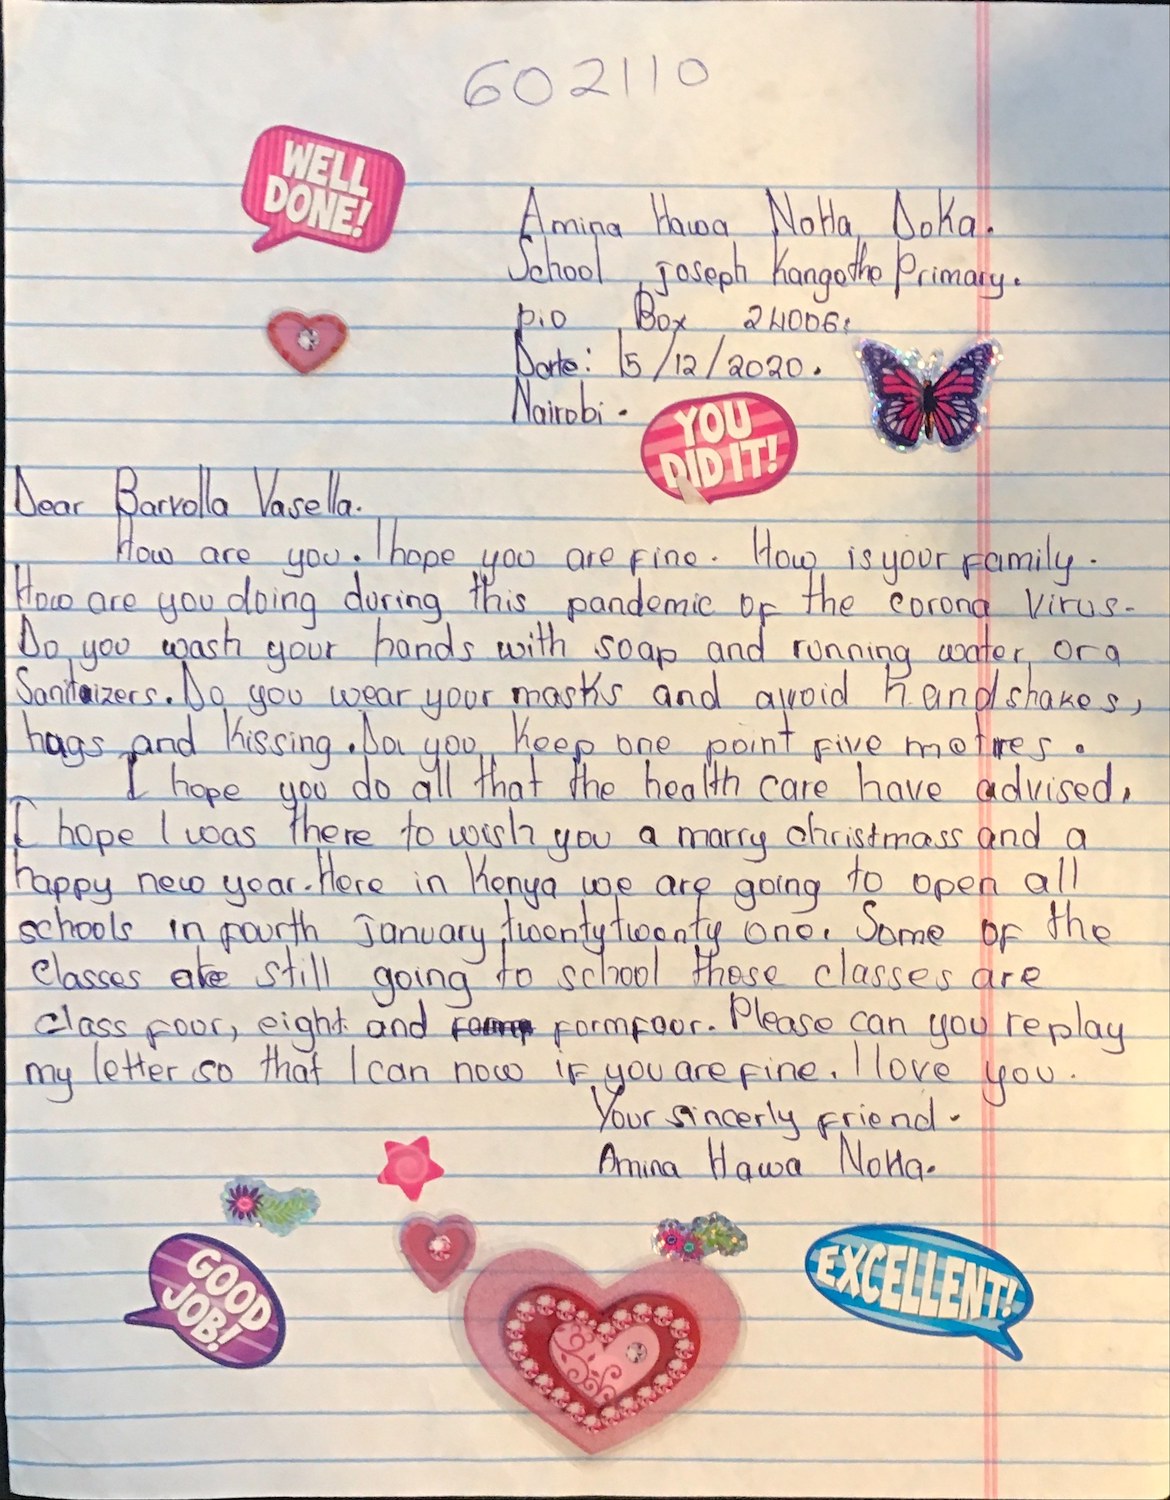 602110
WELL
DONE!
Amina Hawa NoHa Doka.
School joseph Kangothe Primary.
P.O Box 24006.
Date: 15/12/2020.
Nairobi.
YOU
DID IT!
Dear Barvolla Vasella.
How are you. I hope you are fine. How is your family.
How are you doing during this pandemic of the corona virus.
Do you wash your hands with soap and running water or a
Sanitaizers. Do you wear your masks and avoid handshakes,
hags and kissing. Do you keep one point five metres.
I hope you do all that the health care have advised.
I hope I was there to wish you a marry christmass and a
happy new year. Here in Kenya we are going to open all
schools in fourth January twenty twenty one. Some of the
classes are still going to school those classes are
class four, eight and form four. Please can you replay
my letter so that I can now if you are fine. I love you.
Your sincerly friend.
Amina Hawa NoHa.
GOOD
JOB!
EXCELLENT!